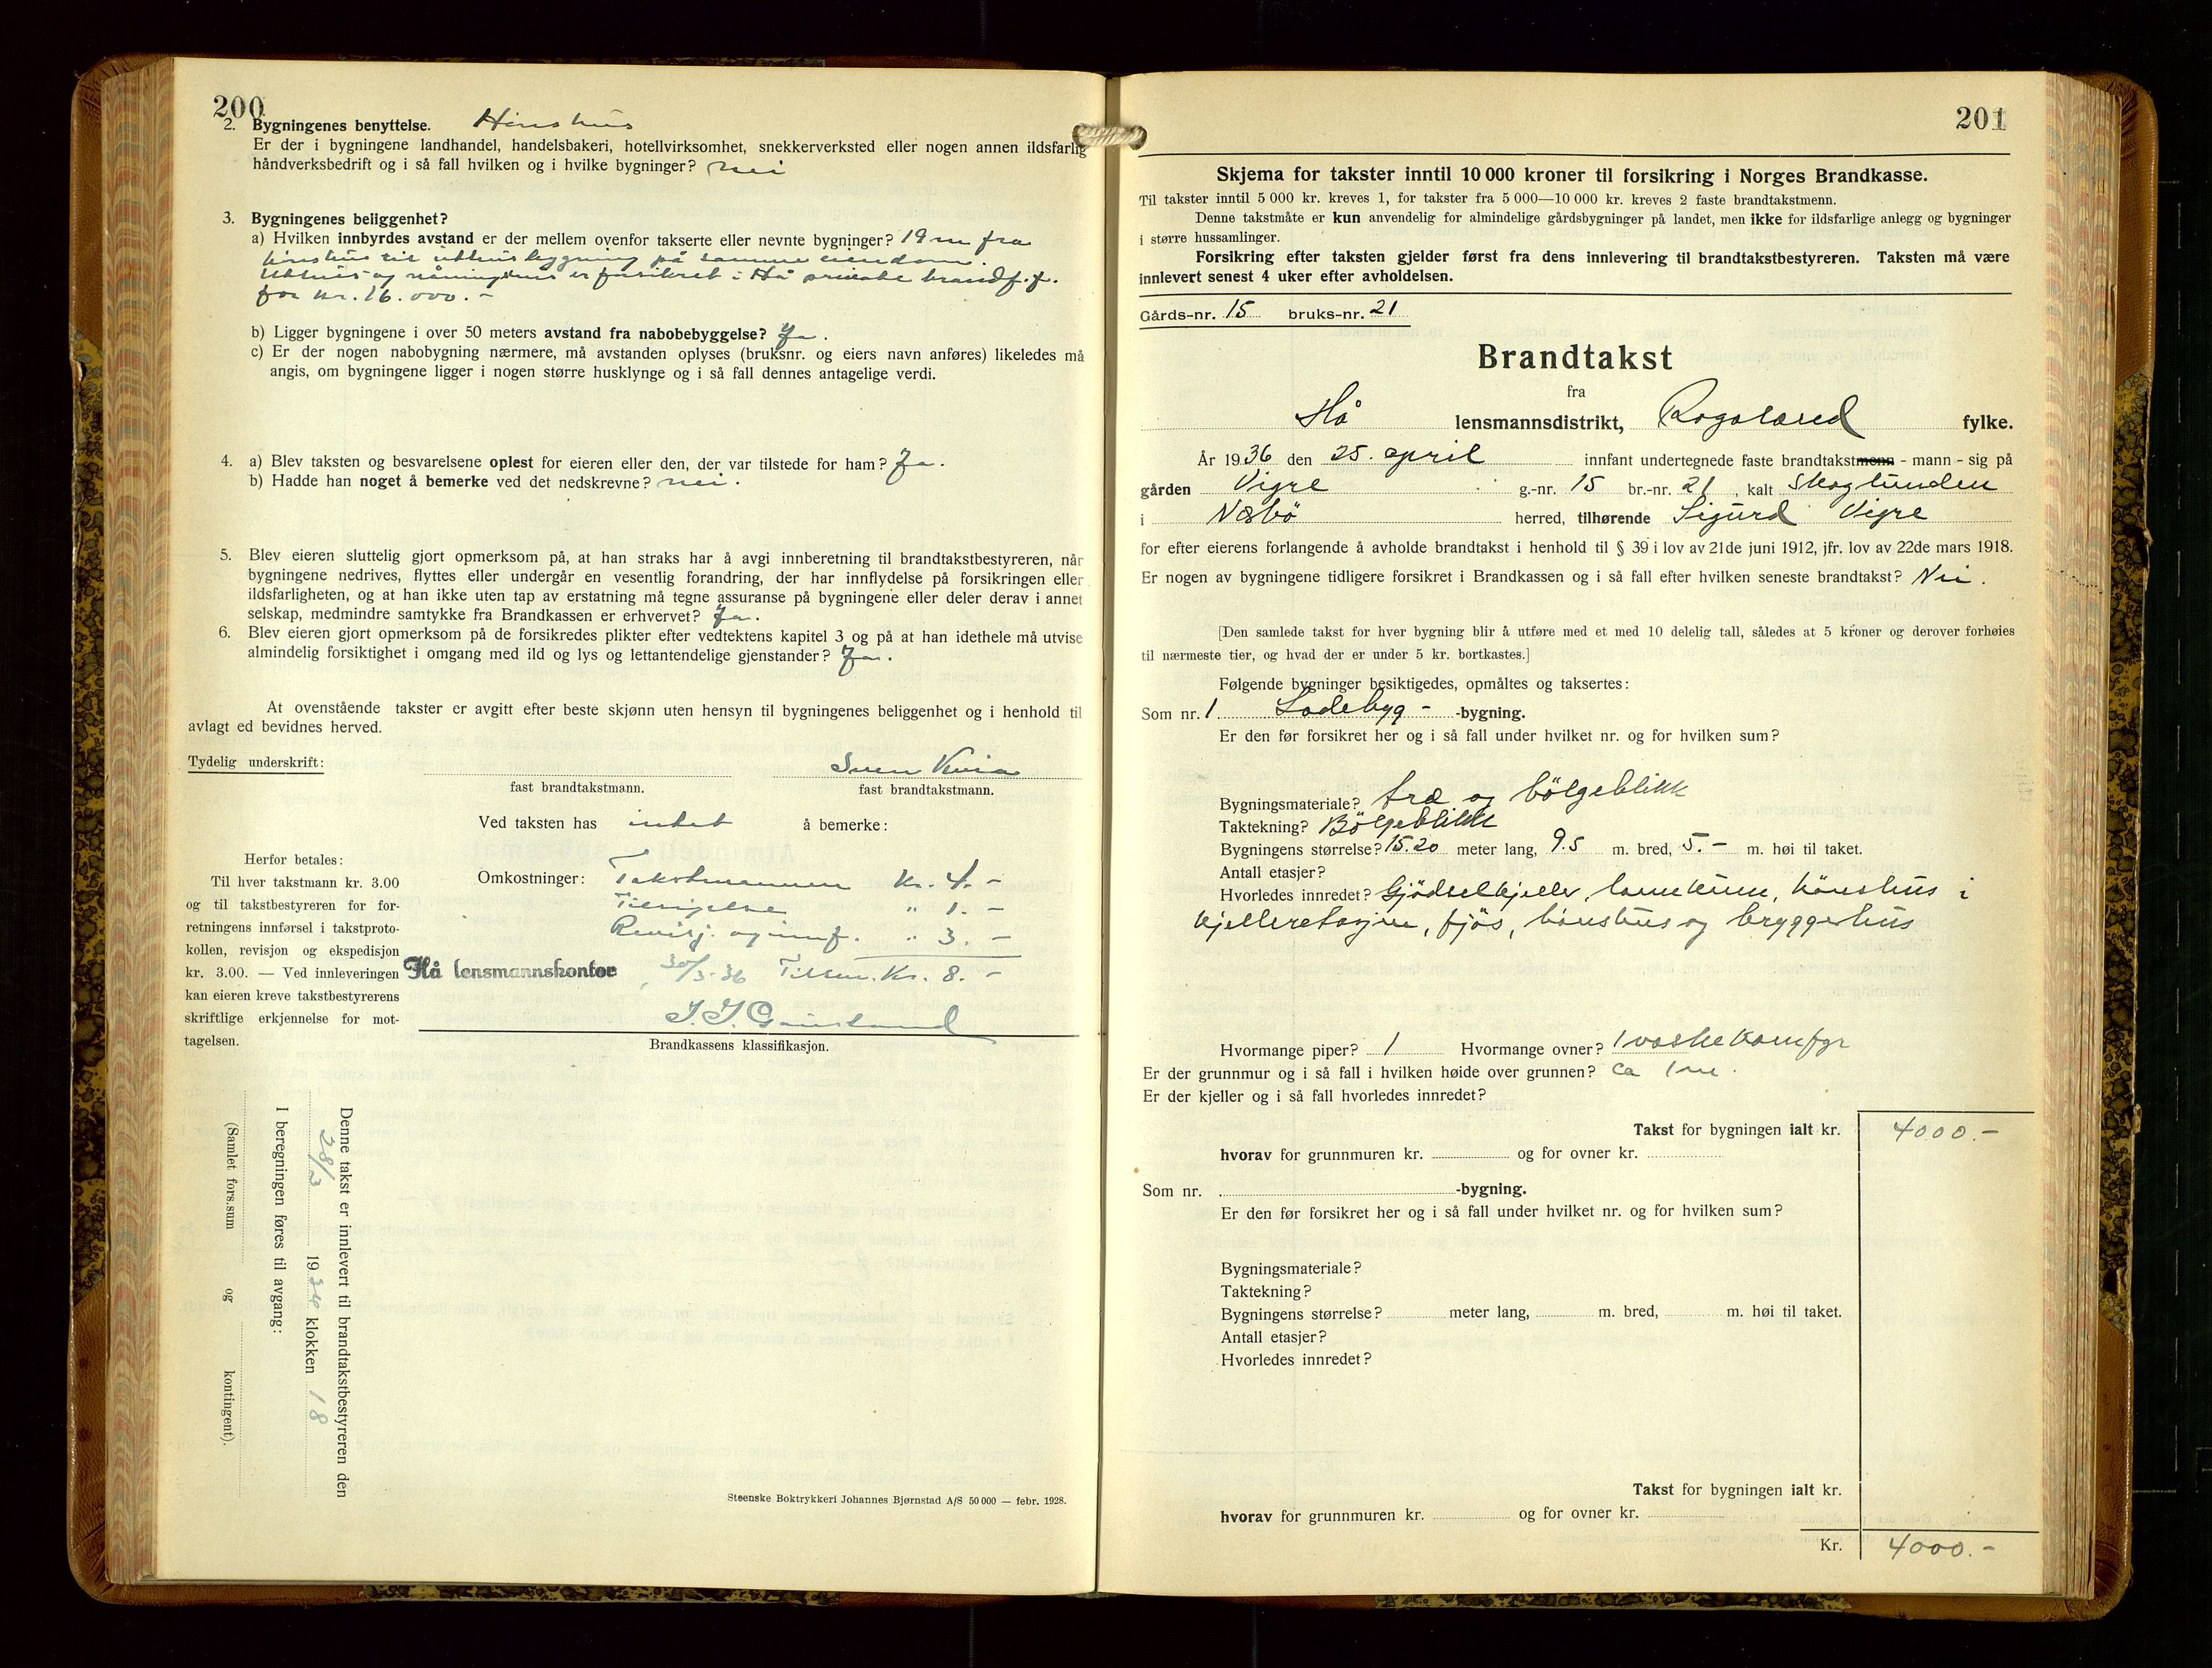 200
2. Bygningenes benyttelse. Hönshus
Er der i bygningene landhandel, handelsbakeri, hotellvirksomhet, snekkerverksted eller nogen annen ildsfarlig
håndverksbedrift og i så fall hvilken og i hvilke bygninger? nei
3. Bygningenes beliggenhet?
a) Hvilken innbyrdes avstand er der mellem ovenfor takserte eller nevnte bygninger? 19 m fra
hönshus til uthusbygning på samme eiendom.
Uthus og våningshus er forsikret i Hå private brandf.f.
for kr. 16.000.-
b) Ligger bygningene i over 50 meters avstand fra nabobebyggelse? Ja.
c) Er der nogen nabobygning nærmere, må avstanden oplyses (bruksnr. og eiers navn anføres) likeledes må
angis, om bygningene ligger i nogen større husklynge og i så fall dennes antagelige verdi.
4. a) Blev taksten og besvarelsene oplest for eieren eller den, der var tilstede for ham? Ja.
b) Hadde han noget å bemerke ved det nedskrevne? nei.
5. Blev eieren sluttelig gjort opmerksom på, at han straks har å avgi innberetning til brandtakstbestyreren, når
bygningene nedrives, flyttes eller undergår en vesentlig forandring, der har innflydelse på forsikringen eller
ildsfarligheten, og at han ikke uten tap av erstatning må tegne assuranse på bygningene eller deler derav i annet
selskap, medmindre samtykke fra Brandkassen er erhvervet? Ja.
6. Blev eieren gjort opmerksom på de forsikredes plikter efter vedtektens kapitel 3 og på at han idethele må utvise
almindelig forsiktighet i omgang med ild og lys og lettantendelige gjenstander? Ja.
At ovenstående takster er avgitt efter beste skjønn uten hensyn til bygningenes beliggenhet og i henhold til
avlagt ed bevidnes herved.
Tydelig underskrift: Sven Kvia
fast brandtakstmann. fast brandtakstmann.
Ved taksten has intet å bemerke:
Herfor betales:
Til hver takstmann kr. 3.00
og til takstbestyreren for for-
retningens innførsel i takstproto-
kollen, revisjon og ekspedisjon
kr. 3.00. — Ved innleveringen
kan eieren kreve takstbestyrerens
skriftlige erkjennelse for mot-
tagelsen.
Omkostninger: Takstmannen Kr. 4.-
Tilsigelse " 1.-
Revisj. og innf. " 3.-
Hå lensmannskontor, 30/3-36 Tilsm. Kr. 8.-
Brandkassens klassifikasjon.
Denne takst er innlevert til brandtakstbestyreren den
28/3 1936 klokken 18
I beregningen føres til avgang:
(Samlet fors.sum og kontingent).
Steenske Boktrykkeri Johannes Bjørnstad A/S 50 000 — febr. 1928.
201
Skjema for takster inntil 10 000 kroner til forsikring i Norges Brandkasse.
Til takster inntil 5 000 kr. kreves 1, for takster fra 5 000—10 000 kr. kreves 2 faste brandtakstmenn.
Denne takstmåte er kun anvendelig for almindelige gårdsbygninger på landet, men ikke for ildsfarlige anlegg og bygninger
i større hussamlinger.
Forsikring efter taksten gjelder først fra dens innlevering til brandtakstbestyreren. Taksten må være
innlevert senest 4 uker efter avholdelsen.
Gårds-nr. 15 bruks-nr. 21
Brandtakst
fra
Hå lensmannsdistrikt, Rogaland fylke.
År 1936 den 25. april innfant undertegnede faste brandtakstmenn - mann - sig på
gården Vigre g.-nr. 15 br.-nr. 21, kalt Skoglunden
i Næbö herred, tilhørende Sigurd Vigre
for efter eierens forlangende å avholde brandtakst i henhold til § 39 i lov av 21de juni 1912, jfr. lov av 22de mars 1918.
Er nogen av bygningene tidligere forsikret i Brandkassen og i så fall efter hvilken seneste brandtakst? Nei.
[Den samlede takst for hver bygning blir å utføre med et med 10 delelig tall, således at 5 kroner og derover forhøies
til nærmeste tier, og hvad der er under 5 kr. bortkastes.]
Følgende bygninger besiktigedes, opmåltes og taksertes:
Som nr. 1 Lodebyg- -bygning.
Er den før forsikret her og i så fall under hvilket nr. og for hvilken sum?
Bygningsmateriale? træ og bölgeblikk
Taktekning? Bölgeblikk
Bygningens størrelse? 15.20 meter lang, 9.5 m. bred, 5.- m. høi til taket.
Antall etasjer?
Hvorledes innredet? Gjödselkjeller, lannkum, hönshus i
kjelleretasjen, fjös, hönshus og bryggerhus
Hvormange piper? 1 Hvormange ovner? 1 vaskekomfyr
Er der grunnmur og i så fall i hvilken høide over grunnen? ca 1 m.
Er der kjeller og i så fall hvorledes innredet?
Takst for bygningen ialt kr. 4000.-
hvorav for grunnmuren kr. og for ovner kr.
Som nr. -bygning.
Er den før forsikret her og i så fall under hvilket nr. og for hvilken sum?
Bygningsmateriale?
Taktekning?
Bygningens størrelse? meter lang, m. bred, m. høi til taket.
Antall etasjer?
Hvorledes innredet?
Takst for bygningen ialt kr.
hvorav for grunnmuren kr. og for ovner kr.
Kr. 4000.-